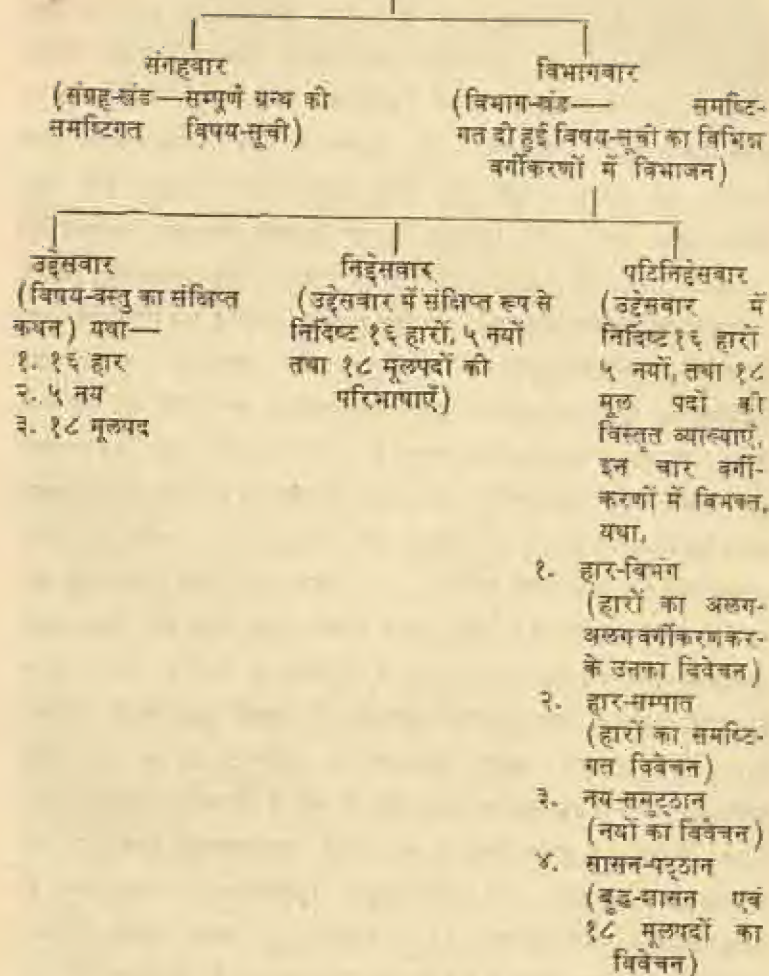 संगहवार
(संग्रह-खंड——सम्पूर्ण ग्रन्थ की
समष्टिगत विषय-सूची)
विभागवार
(विभाग-खंड—— समष्टि-
गत दी हुई विषय-सूची का विभिन्न
वर्गीकरणों में विभाजन)
उद्देसवार
(विषय-वस्तु का संक्षिप्त
कथन) यथा—
१. १६ हार
२. ५ नय
३. १८ मूलपद
निद्देसवार
(उद्देसवार में संक्षिप्त रूप से
निर्दिष्ट १६ हारों, ५ नयों
तथा १८ मूलपदों की
परिभाषाएँ)
पटिनिद्देसवार
(उद्देसवार में
निर्दिष्ट १६ हारों
५ नयों, तथा १८
मूल पदों की
विस्तृत व्याख्याएं,
इन चार वर्गी-
करणों में विभक्त,
यथा,
१. हार-विभंग
(हारों का अलग-
अलग वर्गीकरण कर-
के उनका विवेचन)
२. हार-सम्पात
(हारों का समष्टि-
गत विवेचन)
३. नय-समुट्ठान
(नयों का विवेचन)
४. सासन-पट्ठान
(बुद्ध-सासन एवं
१८ मूलपदों का
विवेचन)